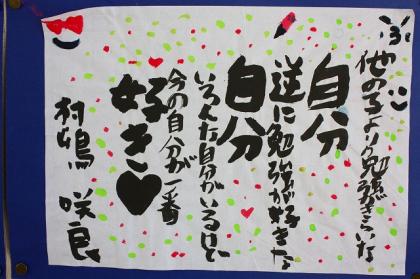 他の子より勉強がきらいな
自分
逆に勉強が好きな
自分
いろんな自分がいるけど
今の自分が一番
好き♥
村嶋 咲良